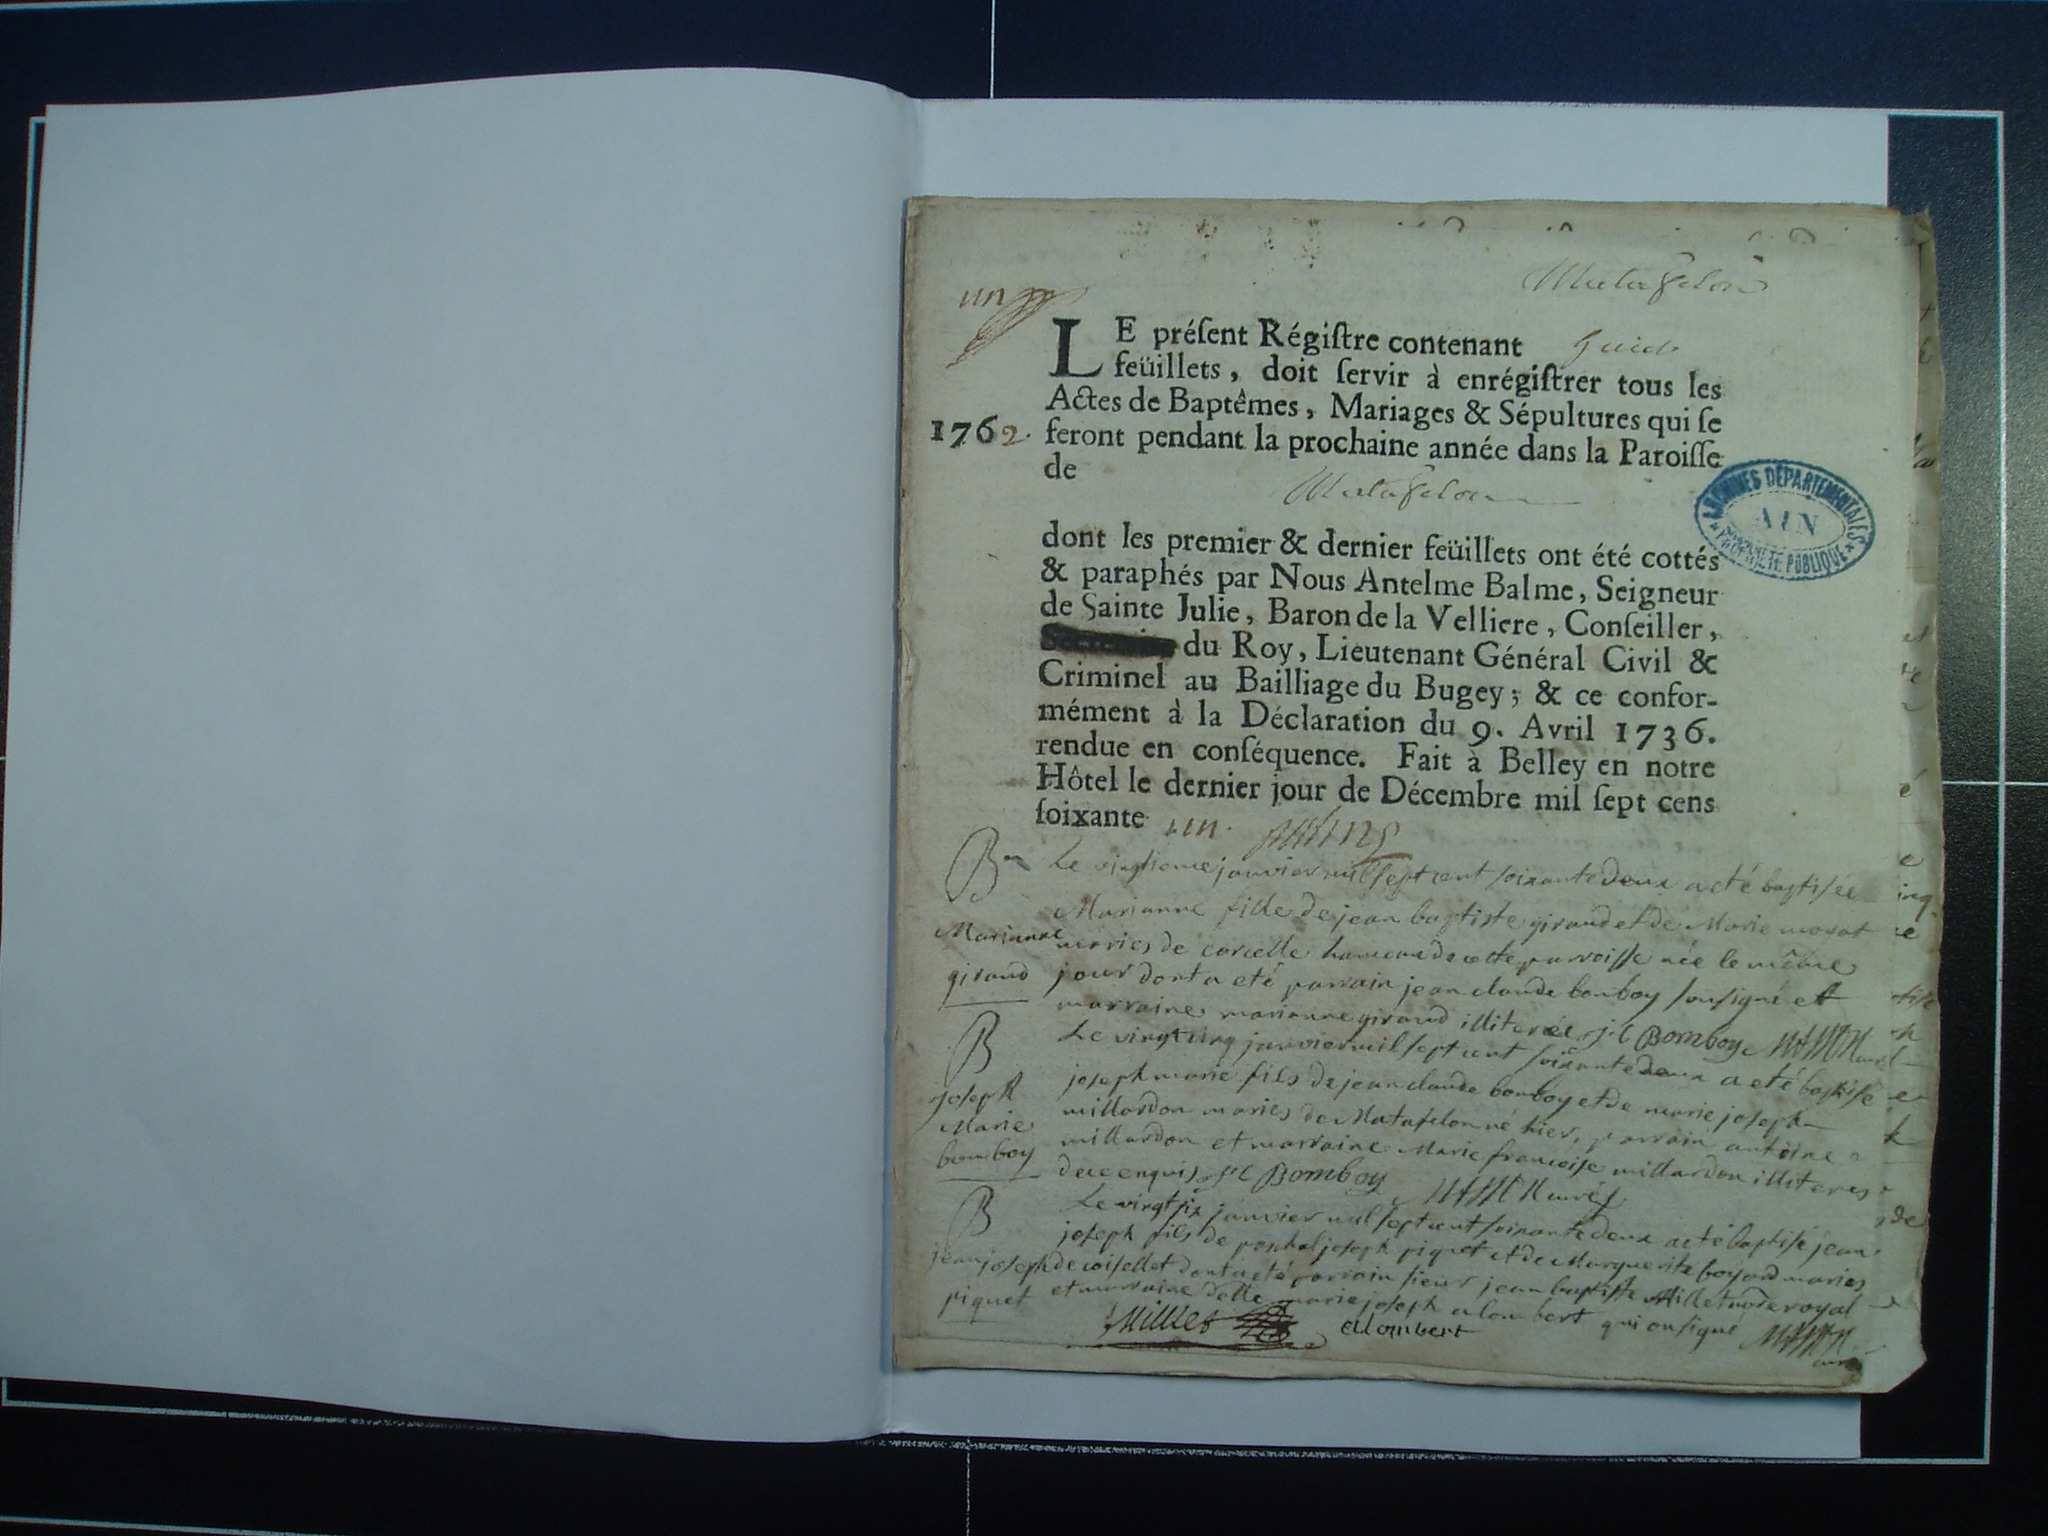 Matafelon
un
LE préſent Régiſtre contenant huict
feüillets, doit ſervir à enrégiſtrer tous les
Actes de Baptêmes, Mariages & Sépultures qui ſe
1762. feront pendant la prochaine année dans la Paroiſſe
de
Matafelon
ARCHIVES DÉPARTEMENTALES
AIN
PROPRIÉTÉ PUBLIQUE
dont les premier & dernier feüillets ont été cottés
& paraphés par Nous Antelme Balme, Seigneur
de Sainte Julie, Baron de la Velliere, Conſeiller,
du Roy, Lieutenant Général Civil &
Criminel au Bailliage du Bugey; & ce confor-
mément à la Déclaration du 9. Avril 1736.
rendue en conſéquence. Fait à Belley en notre
Hôtel le dernier jour de Décembre mil ſept cens
ſoixante un.
B Le vingtieme janvier mil sept cent soixante deux a eté baptisée
Marianne fille de jean baptiste giraud et de Marie
Marianne mariés de corcelle hameau de cette parroisse née le même
giraud jour dont a eté parrain jean claude bonboy sousigné et
marraine marianne giraud illiterée j.C Bomboy
B Le vingt cinq janvier mil sept cent soixante deux a eté baptisé
joseph marie fils de jean claude bonboy et de marie joseph
joseph millardon mariés de Matafelon né hier, parrain antoine
Marie millardon et marraine Marie françoise millardon illiteres
bomboy de ce enquis j C Bomboy curé
B Le vingt six janvier mil sept cent soixante deux a eté baptisé jean
joseph fils de joseph piquet et de Marguerite mariés
jean joseph de coisellet dont a eté parrain sieur jean baptiste Millet royal
piquet et marraine delle marie joseph alombert qui on signé
Milliet Allombert